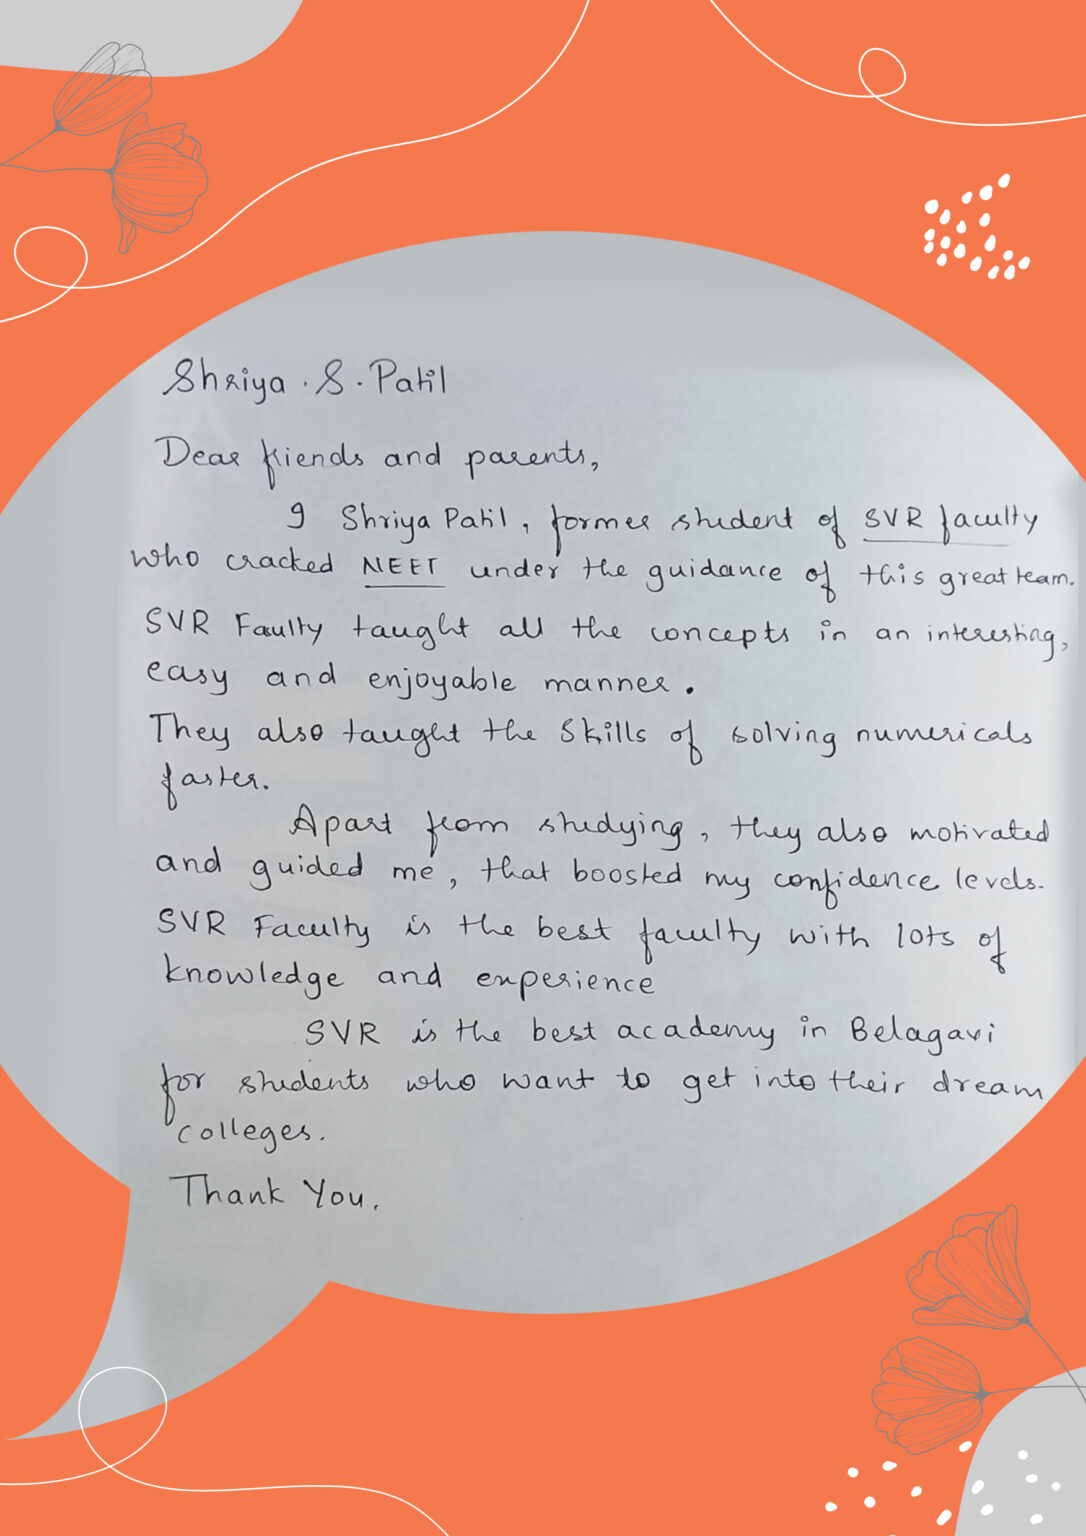 Shriya . S . Patil
Dear friends and parents,
I Shriya Patil, former student of SVR faculty
who cracked NEET under the guidance of this great team.
SVR Faulty taught all the concepts in an interesting,
easy and enjoyable manner.
They also taught the skills of solving numericals
faster.
Apart from studying, they also motivated
and guided me, that boosted my confidence levels.
SVR Faculty is the best faculty with lots of
knowledge and experience
SVR is the best academy in Belagavi
for students who want to get into their dream
colleges.
Thank You.